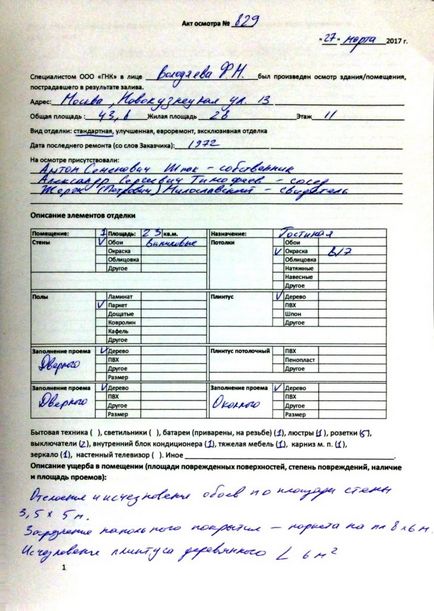 Акт осмотра № 829
"27" марта 2017 г.
Специалистом ООО «ГНК» в лице Володяева Ф.Н. был произведен осмотр здания/помещения,
пострадавшего в результате залива.
Адрес: Москва, Новокузнецкая ул. 13
Общая площадь: 43,6 Жилая площадь 28 Этаж 11
Вид отделки: стандартная, улучшенная, евроремонт, эксклюзивная отделка
Дата последнего ремонта (со слов Заказчика): 1972
На осмотре присутствовали:
Антон Семенович Шпак - собственник
Александр Сергеевич Тимофеев - сосед
Жорж (Петрович) Милославский - свидетель
Описание элементов отделки
Помещение: 1 Площадь: 23 кв.м. Назначение: Гостиная
Стены V Обои Виниловые Потолки Обои
Окраска V Окраска В/Э
Облицовка Облицовка
Другое Натяжные
Навесные
Другое
Полы Ламинат Плинтус V Дерево
V Паркет ПВХ
Дощатые Шпон
Ковролин Другое
Кафель
Другое
Заполнение проема V Дерево Плинтус потолочный ПВХ
Дверного ПВХ Пенопласт
Другое Другое
Размер
Заполнение проема V Дерево Заполнение проема V Дерево
Дверного ПВХ Оконного ПВХ
Другое Другое
Размер Размер
Бытовая техника ( ), светильники ( ), батареи (приварены, на резьбе) (1), люстры (1), розетки (5),
выключатели (2), внутренний блок кондиционера (1), тяжелая мебель (1), карниз м. п. (1),
зеркало (1), настенный телевизор ( ). Иное
Описание ущерба в помещении (площади поврежденных поверхностей, степень повреждений, наличие
и площадь проемов):
Отслоение и исчезновение обоев по площади стены
3,5 х 5 м.
напольного покрытия – паркета на пл 8 х 6 м.
Исчезновение плинтуса деревянного L 6 м²
1